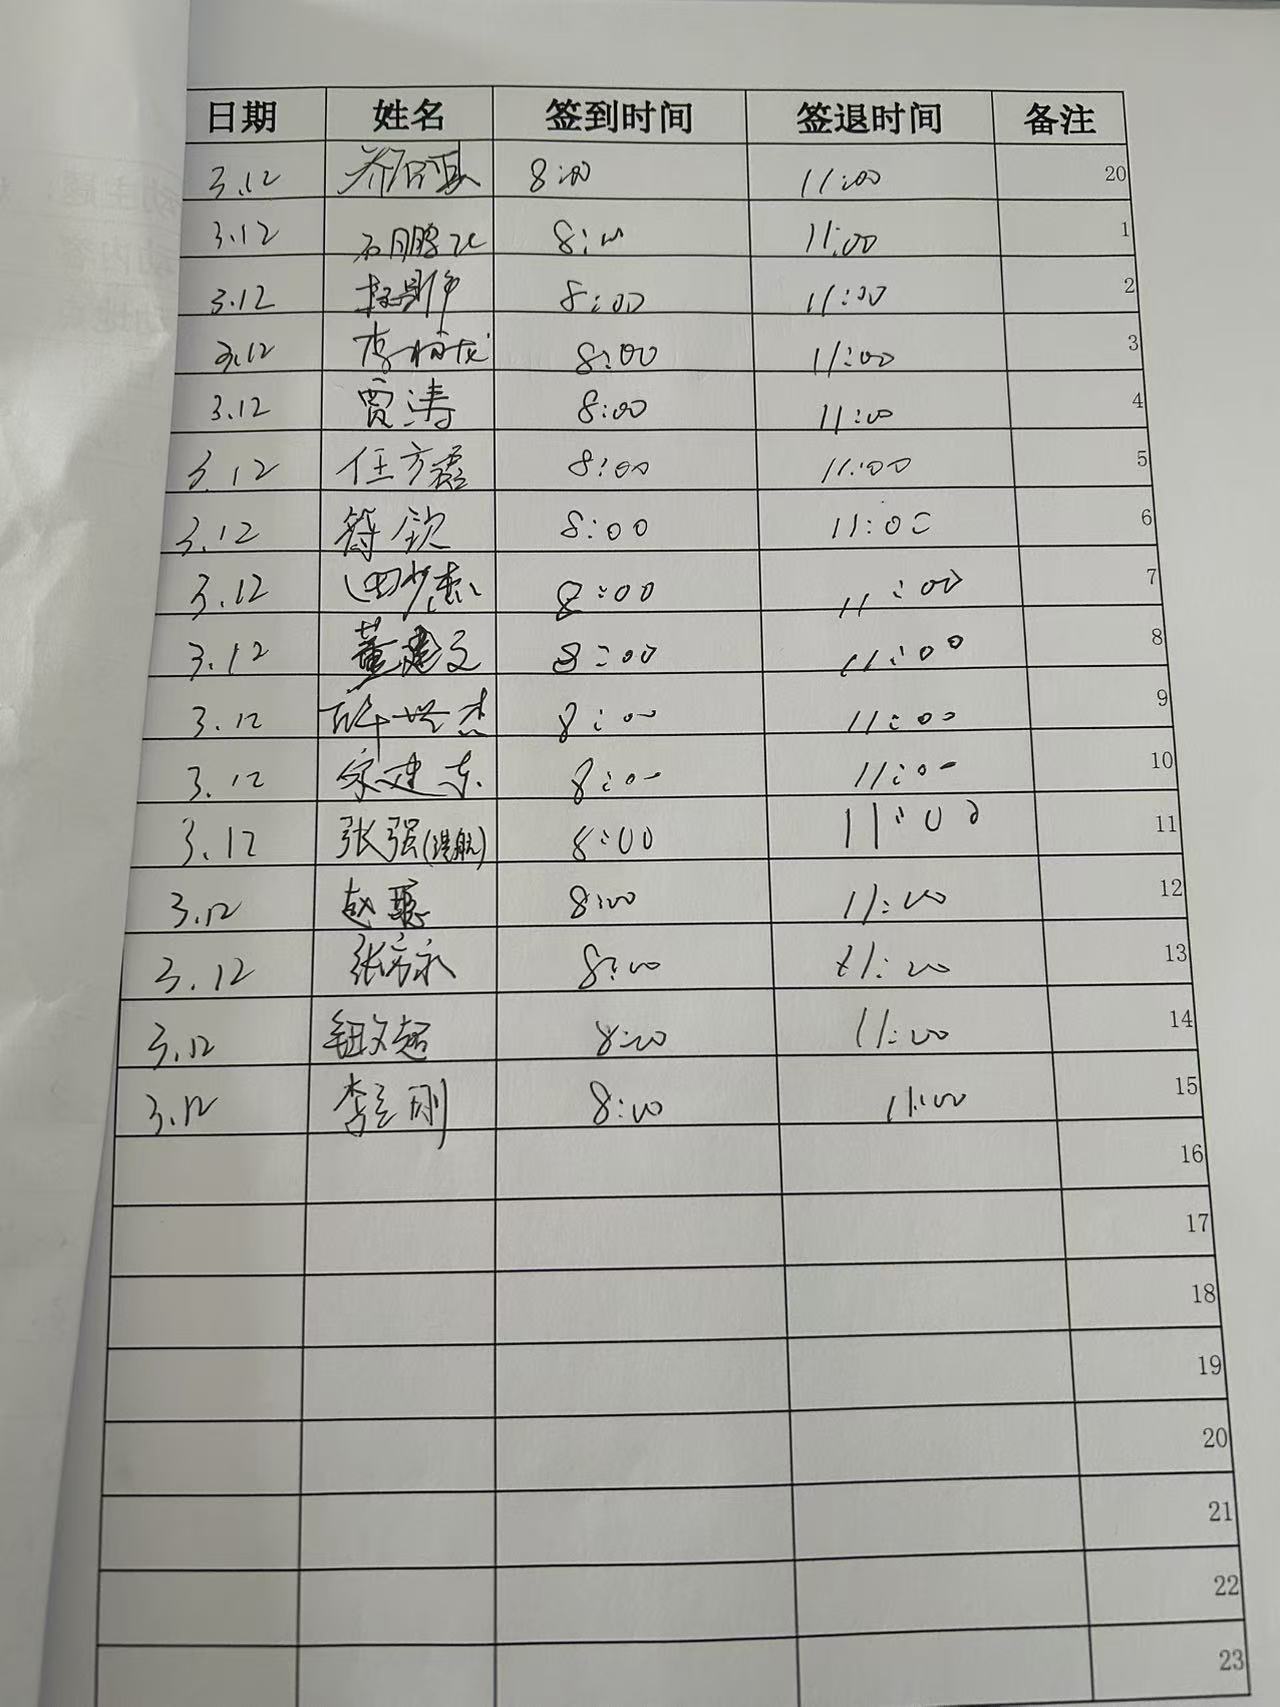 日期 姓名 签到时间 签退时间 备注
3.12 8:00 11:00 20
3.12 8:00 11:00 1
3.12 8:00 11:00 2
3.12 8:00 11:00 3
3.12 贾涛 8:00 11:00 4
3.12 任方磊 8:00 11:00 5
3.12 符钦 8:00 11:00 6
3.12 田少杰 8:00 11:00 7
3.12 董建文 8:00 11:00 8
3.12 8:00 11:00 9
3.12 宋建东 8:00 11:00 10
3.12 张强(港航) 8:00 11:00 11
3.12 赵聪 8:00 11:00 12
3.12 张方永 8:00 11:00 13
3.12 钮文超 8:00 11:00 14
3.12 李立刚 8:00 11:00 15
16
17
18
19
20
21
22
23